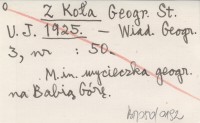 Z Koła Geogr. St.
U. J. 1925. – Wiad. Geogr.
3, nr : 50.
M. in. wycieczka geogr.
na Babią Górę.